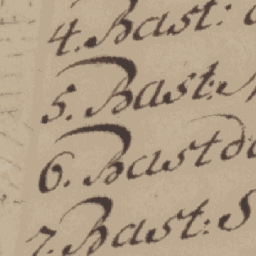 4. Bast:
5. Bast:
6. Bast
7. Bast: S